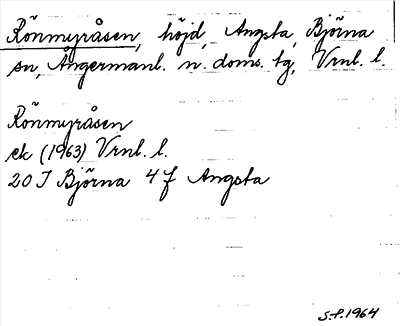 Rönmyråsen, höjd, Angsta, Björna
sn, Ångermanl. n. doms. tg, Vrnl. l.
Rönmyråsen
ek (1963) Vrnl. l.
20 J Björna 4 f Angsta
S.P. 1964